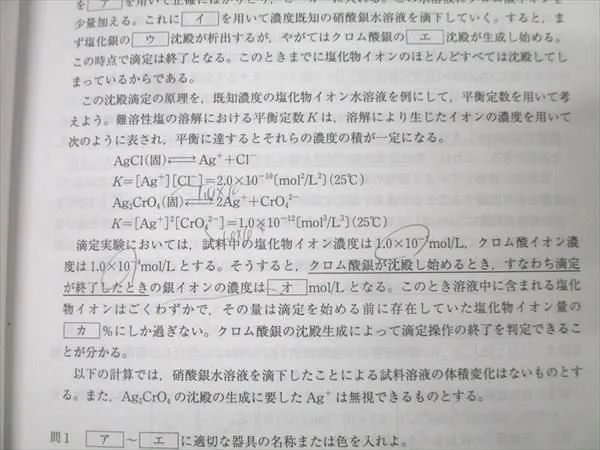 を ア を用いて正確にはかりとり、
少量加える。これに イ を用いて濃度既知の硝酸銀水溶液を滴下していく。すると，ま
ず塩化銀の ウ 沈殿が析出するが，やがてはクロム酸銀の エ 沈殿が生成し始める。
この時点で滴定は終了となる。このときまでに塩化物イオンのほとんどすべては沈殿してし
まっているからである。
この沈殿滴定の原理を，既知濃度の塩化物イオン水溶液を例にして，平衡定数を用いて考
えよう。難溶性塩の溶解における平衡定数 K は，溶解により生じたイオンの濃度を用いて
次のように表され，平衡に達するとそれらの濃度の積が一定になる。
AgCl(固)⇄Ag⁺+Cl⁻
K=[Ag⁺][Cl⁻]=2.0×10⁻¹⁰[mol²/L²](25℃)
Ag₂CrO₄(固)⇄2Ag⁺+CrO₄²⁻
K=[Ag⁺]²[CrO₄²⁻]=1.0×10⁻¹²[mol³/L³](25℃)
滴定実験においては，試料中の塩化物イオン濃度は 1.0×10 mol/L，クロム酸イオン濃
度は 1.0×10⁻⁴mol/L とする。そうすると，クロム酸銀が沈殿し始めるとき，すなわち滴定
が終了したときの銀イオンの濃度は オ mol/L となる。このとき溶液中に含まれる塩化
物イオンはごくわずかで，その量は滴定を始める前に存在していた塩化物イオン量の
カ %にしか過ぎない。クロム酸銀の沈殿生成によって滴定操作の終了を判定できるこ
とが分かる。
以下の計算では，硝酸銀水溶液を滴下したことによる試料溶液の体積変化はないものとす
る。また，Ag₂CrO₄ の沈殿の生成に要した Ag⁺ は無視できるものとする。
問1 ア ～ エ に適切な器具の名称または色を入れよ。